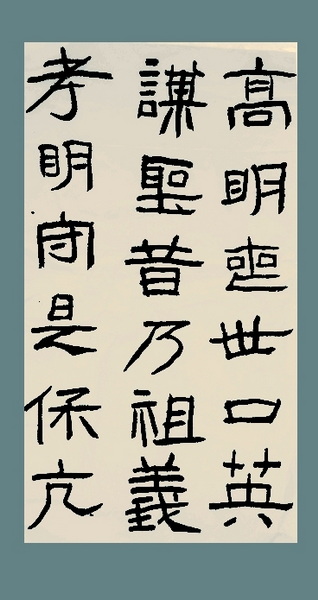 高明世口英
謙聖昔乃祖義
孝明守是保亢